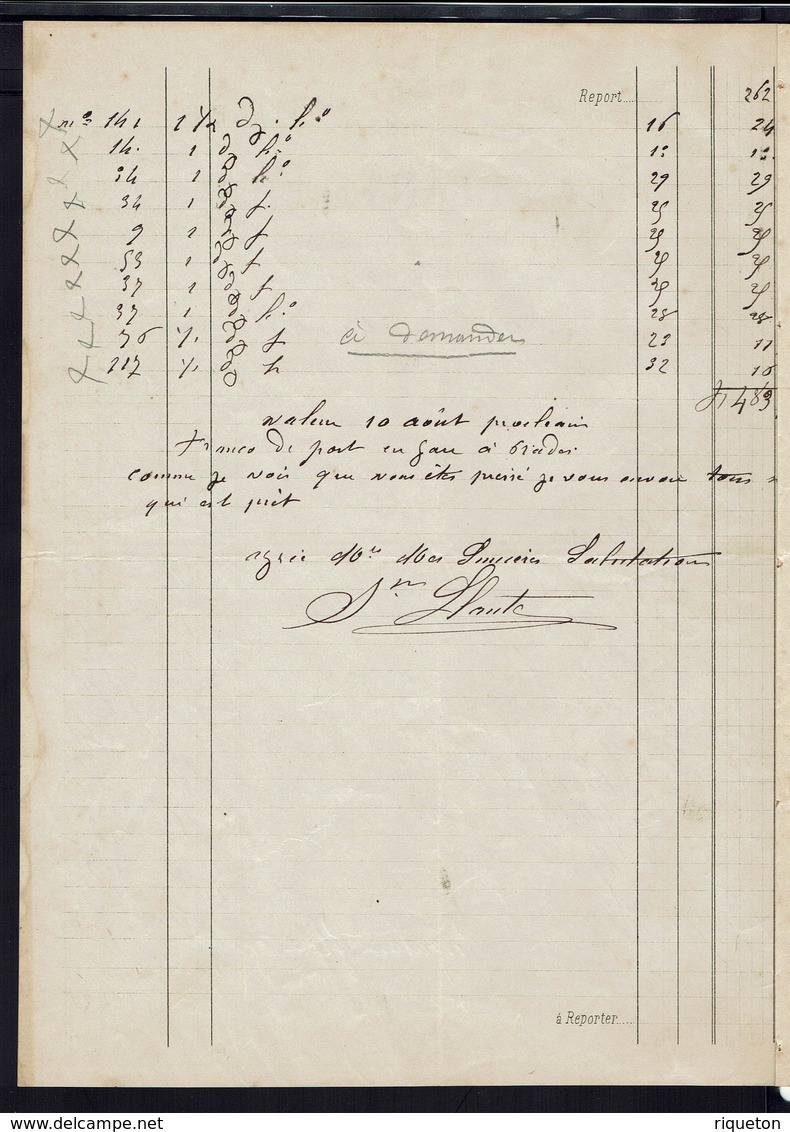 Report.... 262
n° 141 1 1/2 d° h° 16 24
14. 1 d° h°
34 1 d° h° 29 29
34 1 d° f. 25 25
9 1 d° f 25 25
53 1 d° f 25 25
37 1 d° f 25 25
37 1 d° h° 28 28
76 1/2 d° f 23 11
117 1/2 d° h 32 16
à demander
f 483
valeur 10 août prochain
Franco de port en gare à Prades
comme je vois que vous êtes pressé je vous envoie tous
qui est prêt
Mes Sincères Salutations
à Reporter.....
www.delcampe.net
riqueton